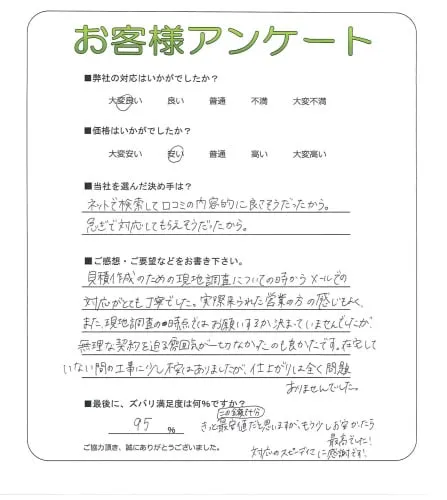 お客様アンケート
■弊社の対応はいかがでしたか？
大変良い 良い 普通 不満 大変不満
■価格はいかがでしたか？
大変安い 安い 普通 高い 大変高い
■当社を選んだ決め手は？
ネットで検索して口コミの内容的に良さそうだったから。
急ぎで対応してもらえそうだったから。
■ご感想・ご要望などをお書き下さい。
見積作成のための現地調査についての時からメールでの
対応がとても丁寧でした。実際来られた営業の方の感じもよく、
また、現地調査の時点ではお願いするか決まっていませんでしたが、
無理な契約を迫る雰囲気が一切なかったのも良かったです。在宅して
いない間の工事に少し不安はありましたが、仕上がりは全く問題
ありませんでした。
■最後に、ズバリ満足度は何%ですか？
この金額でも十分
95 %
きっと最安値だと思いますが、もう少しお安かったら
最高でした！
ご協力頂き、誠にありがとうございました。
対応のスピーディさに感謝です！